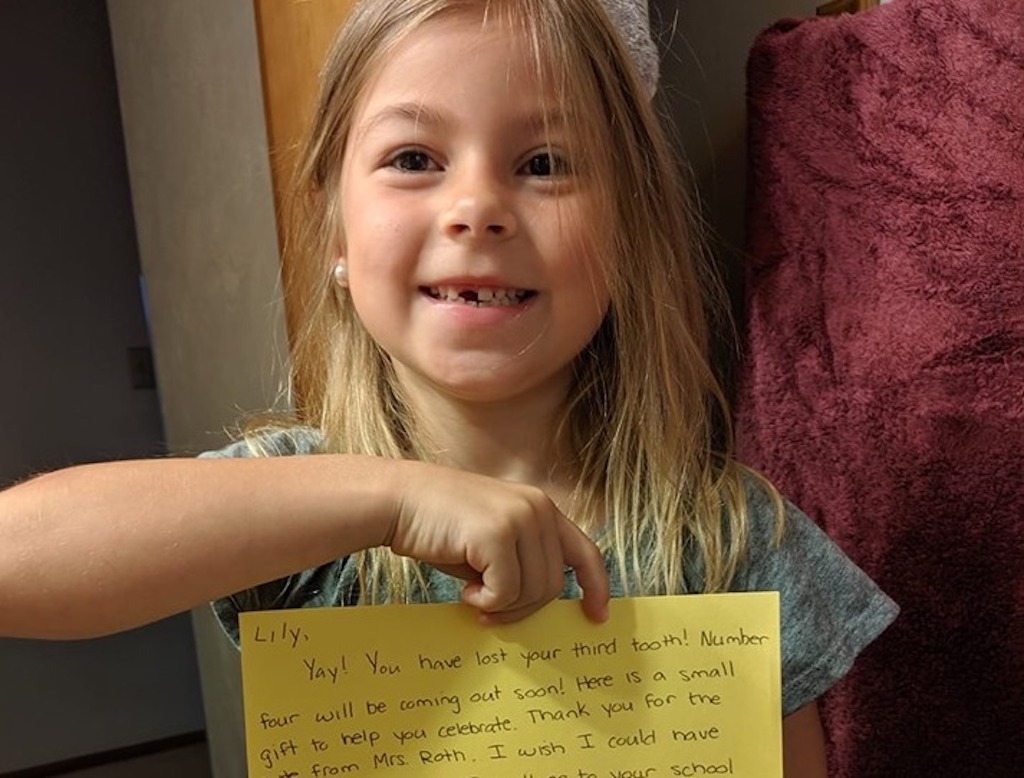 Lily,
Yay! You have lost your third tooth! Number
four will be coming out soon! Here is a small
gift to help you celebrate. Thank you for the
from Mrs. Roth. I wish I could have
to your school